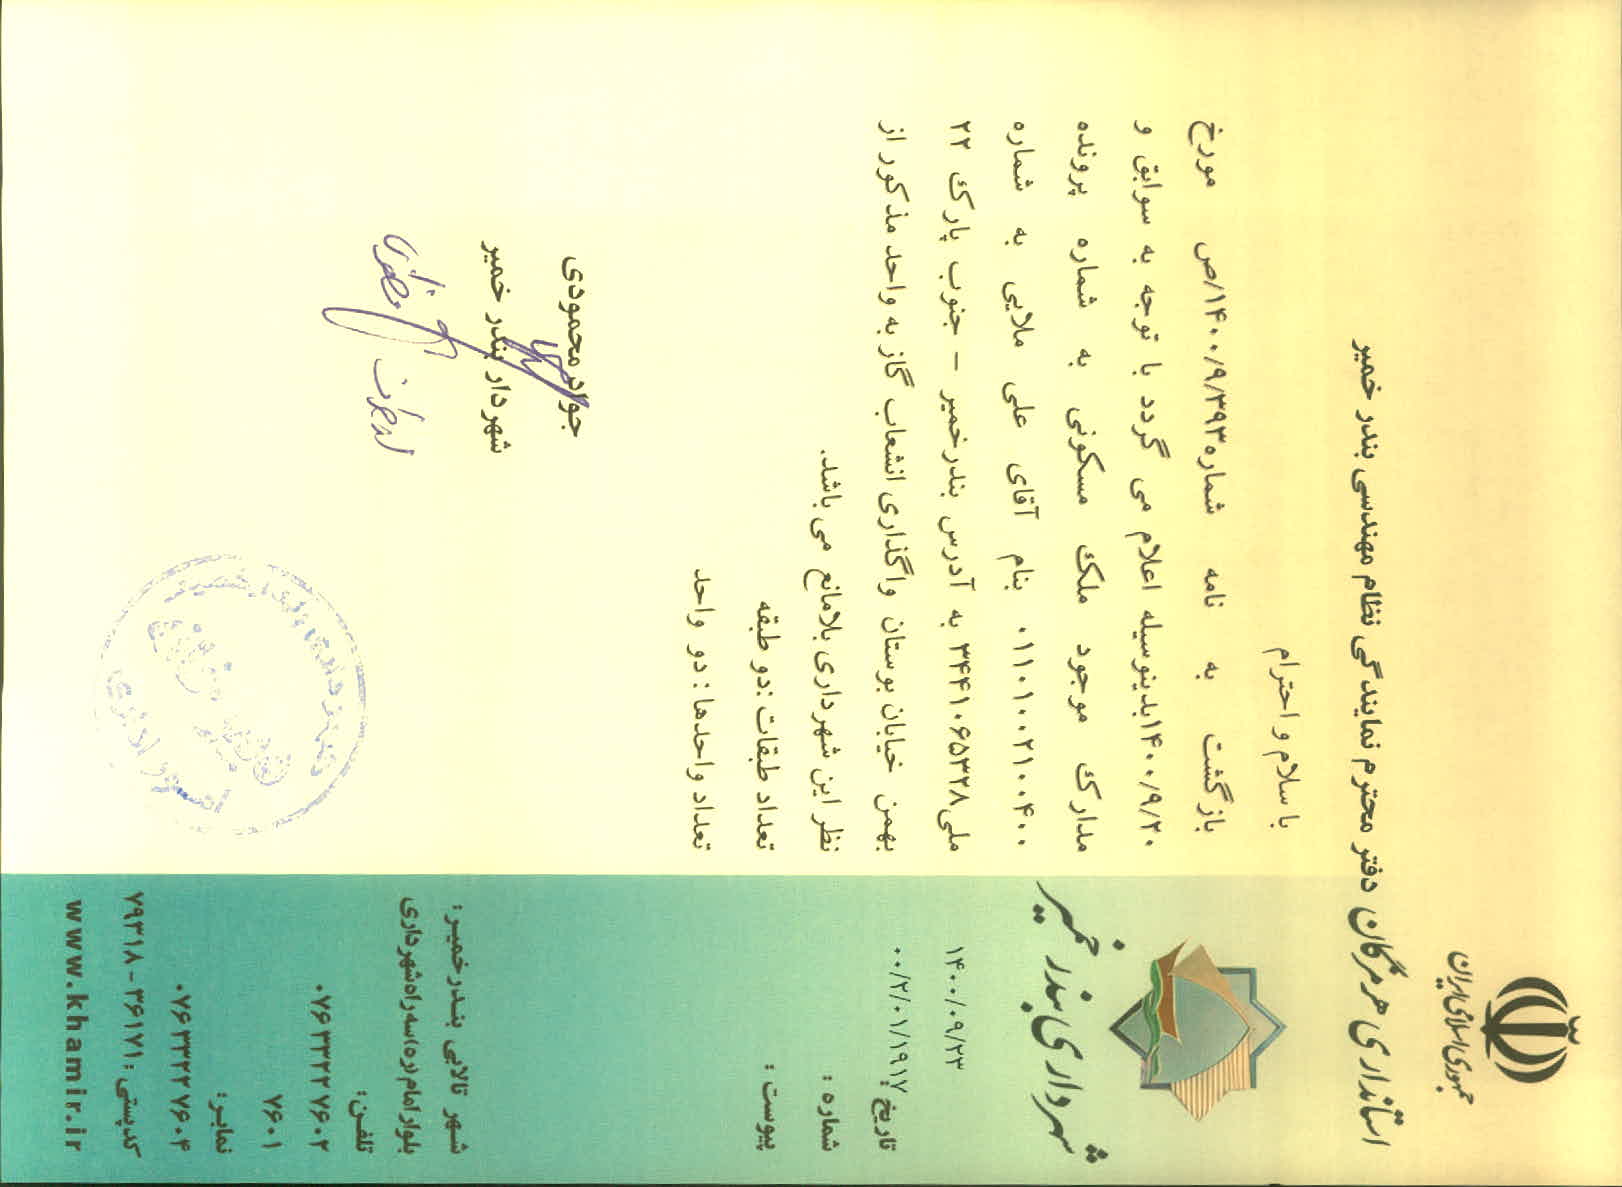 جمهوری اسلامی ایران
استانداری هرمزگان
شهرداری بندر خمیر
۱۴۰۰/۰۹/۲۳
تاریخ: ۰۰/۲/۰۱/۱۹۱۷
شماره :
پیوست :
دفتر محترم نمایندگی نظام مهندسی بندر خمیر
با سلام و احترام
بازگشت به نامه شماره۱۴۰۰/۹/۳۹۳/ص مورخ
۱۴۰۰/۹/۲۰بدینوسیله اعلام می گردد با توجه به سوابق و
مدارک موجود ملک مسکونی به شماره پرونده
۰۱۱۰۱۰۰۲۱۰۰۴۰۰ بنام آقای علی ملایی به شماره
ملی۳۴۴۱۰۶۵۳۲۸ به آدرس بندرخمیر – جنوب پارک ۲۲
بهمن خیابان بوستان واگذاری انشعاب گاز به واحد مذکور از
نظر این شهرداری بلامانع می باشد.
تعداد طبقات :دو طبقه
تعداد واحدها: دو واحد
جواد محمودی
شهردار بندر خمیر
شهر تالابی بندرخمیر:
بلوار امام(ره)سه راه شهرداری
تلفن:
۰۷۶۳۳۲۲۷۶۰۲
۷۶۰۱
نمابر:
۰۷۶۳۳۲۲۷۶۰۴
کدپستی: ۳۶۱۷۱ - ۷۹۳۱۸
www.khamir.ir